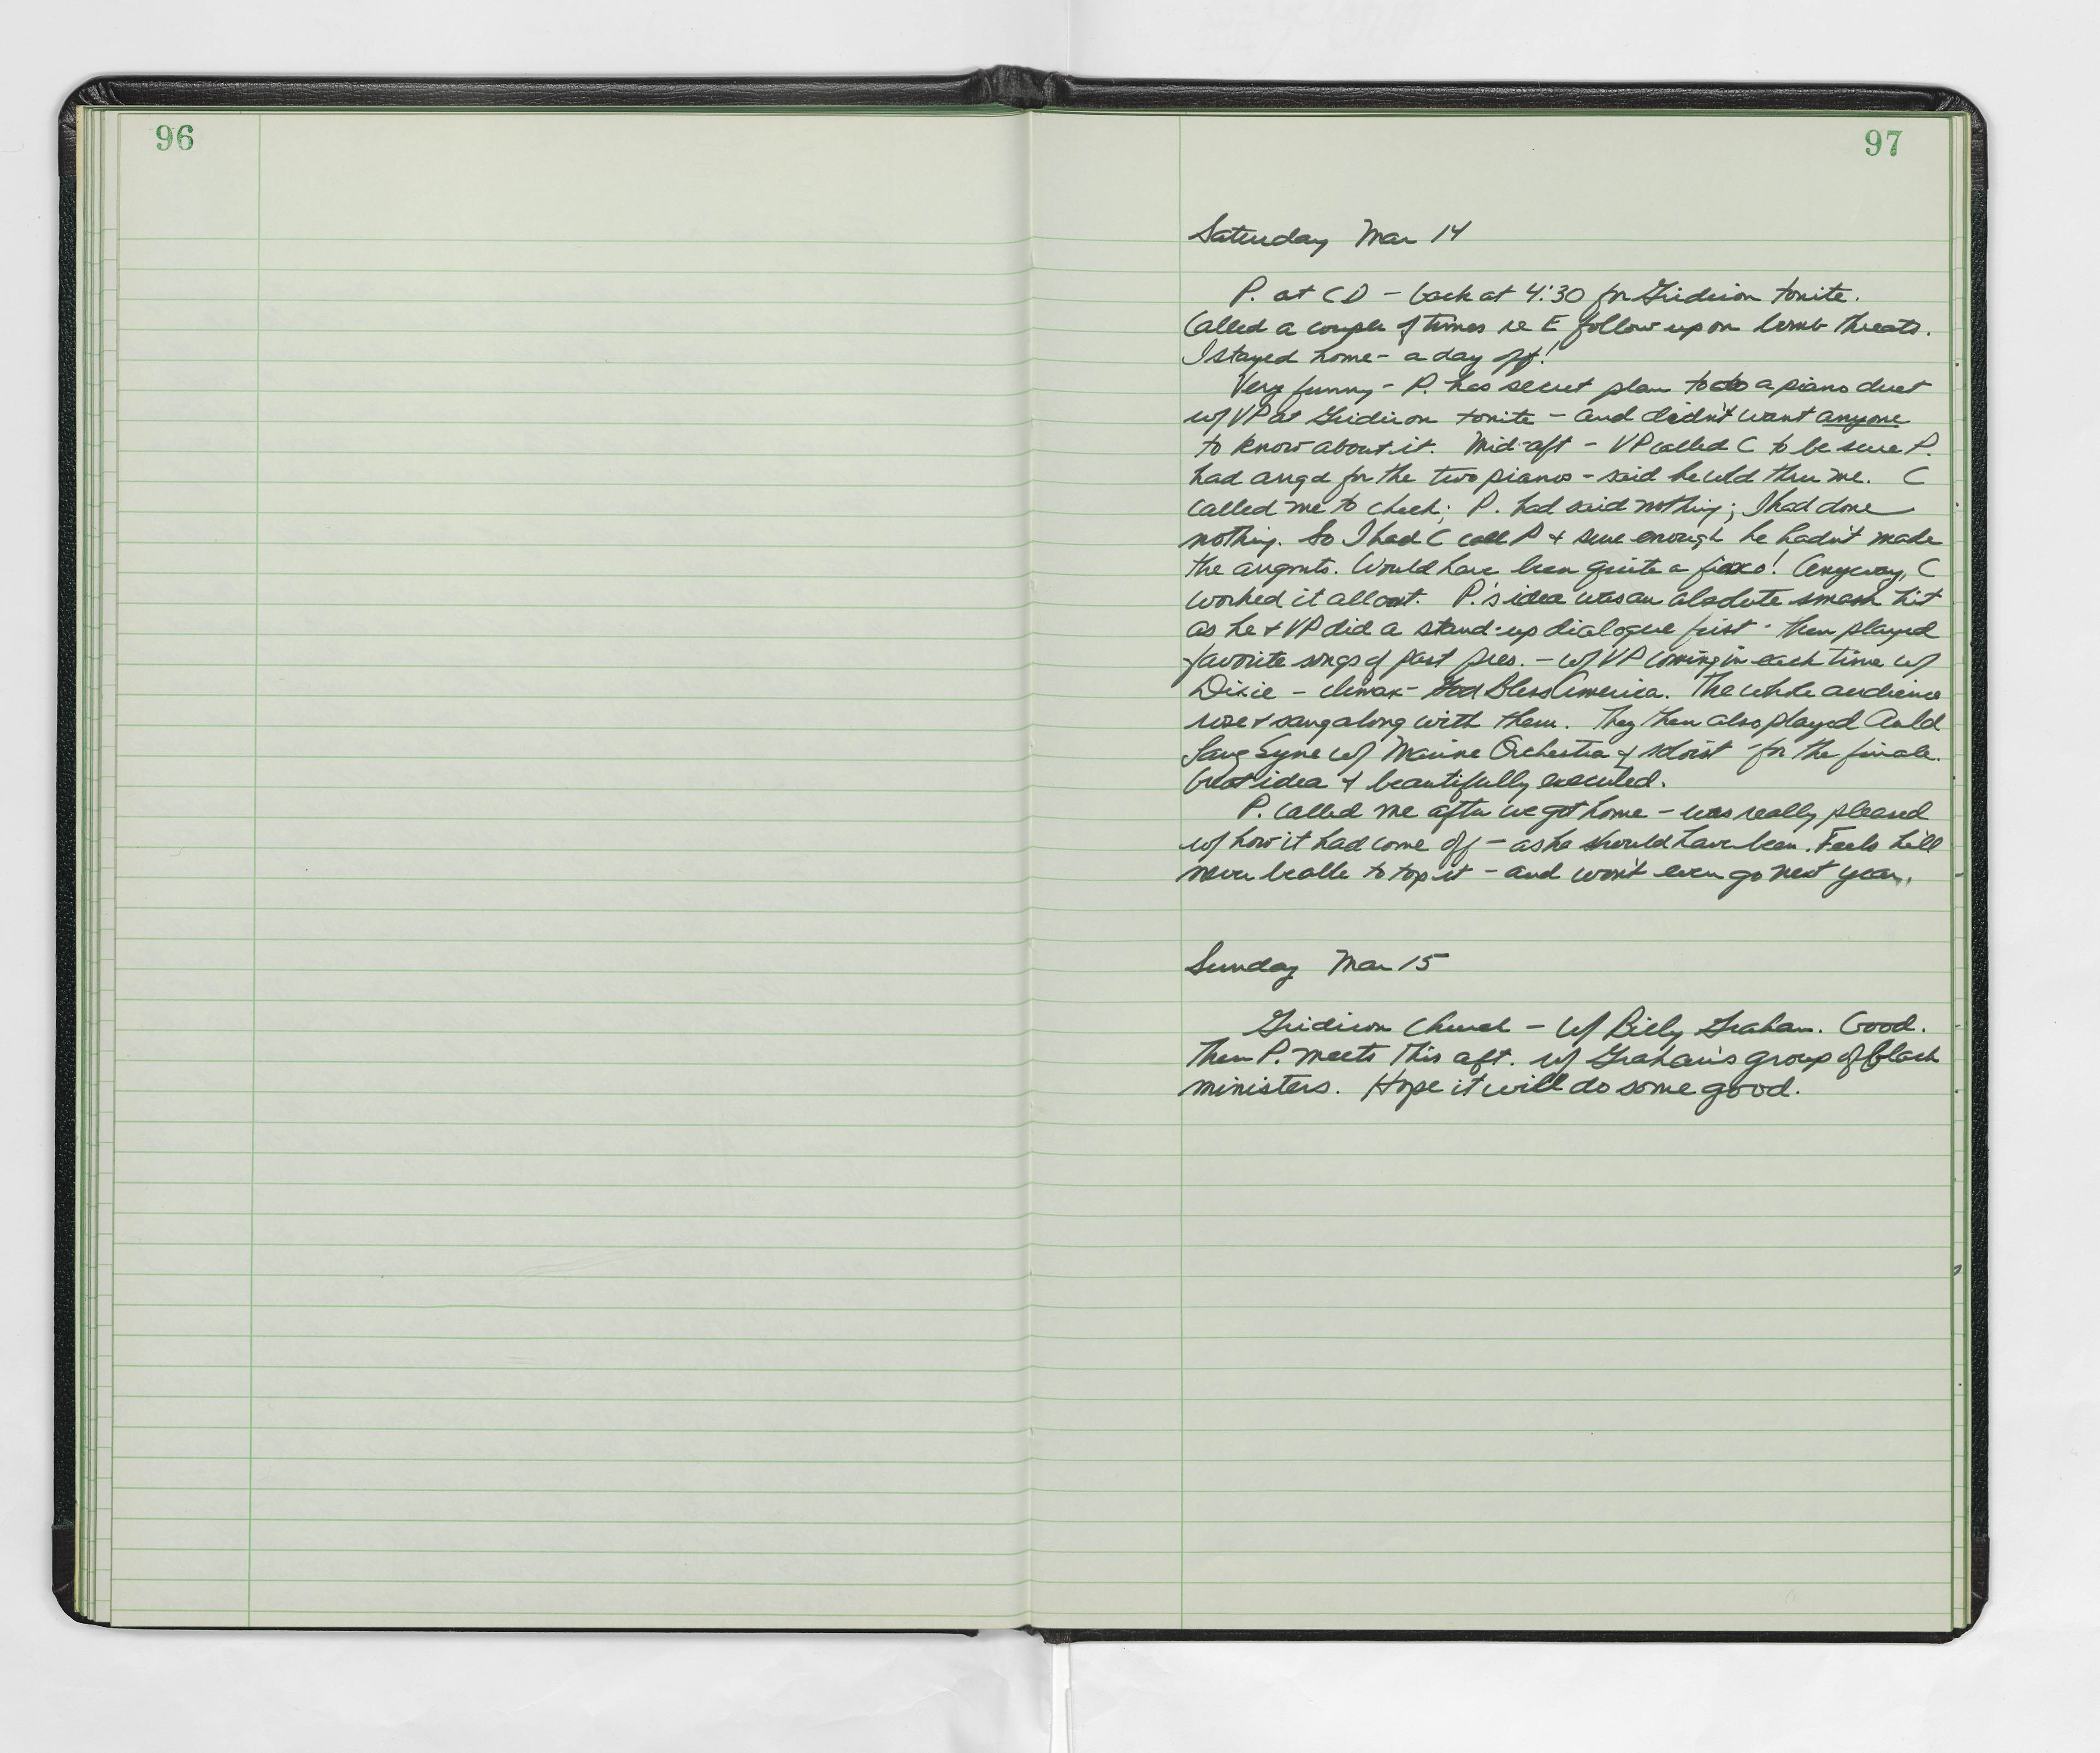 96
97
Saturday Mar 14
P. at CD - back at 4:30 for Gridiron tonite.
Called a couple of times re E follow up on bomb threats.
I stayed home - a day off!
Very funny - P. has secret plan to do a piano duet
w/ VP at Gridiron tonite - and didn't want anyone
to know about it. Mid-aft - VP called C to be sure P.
had angd for the two pianos - said he wld thru me. C
called me to check; P. had said nothing; I had done
nothing. So I had C call P & sure enough he hadn't made
the angmts. Would have been quite a fiasco! Anyway, C
worked it all out. P.'s idea was an absolute smash hit
as he & VP did a stand-up dialogue first - then played
favorite songs of past pres. - w/ VP coming in each time w/
Dixie - climax - God Bless America. The whole audience
rose & sang along with them. They then also played Auld
Lang Syne w/ Marine Orchestra & soloist - for the finale.
Great idea & beautifully executed.
P. called me after we got home - was really pleased
w/ how it had come off - as he should have been. Feels he'll
never be able to top it - and won't even go next year.
Sunday Mar 15
Gridiron Church - w/ Billy Graham. Good.
Then P. meets this aft. w/ Graham's group of black
ministers. Hope it will do some good.